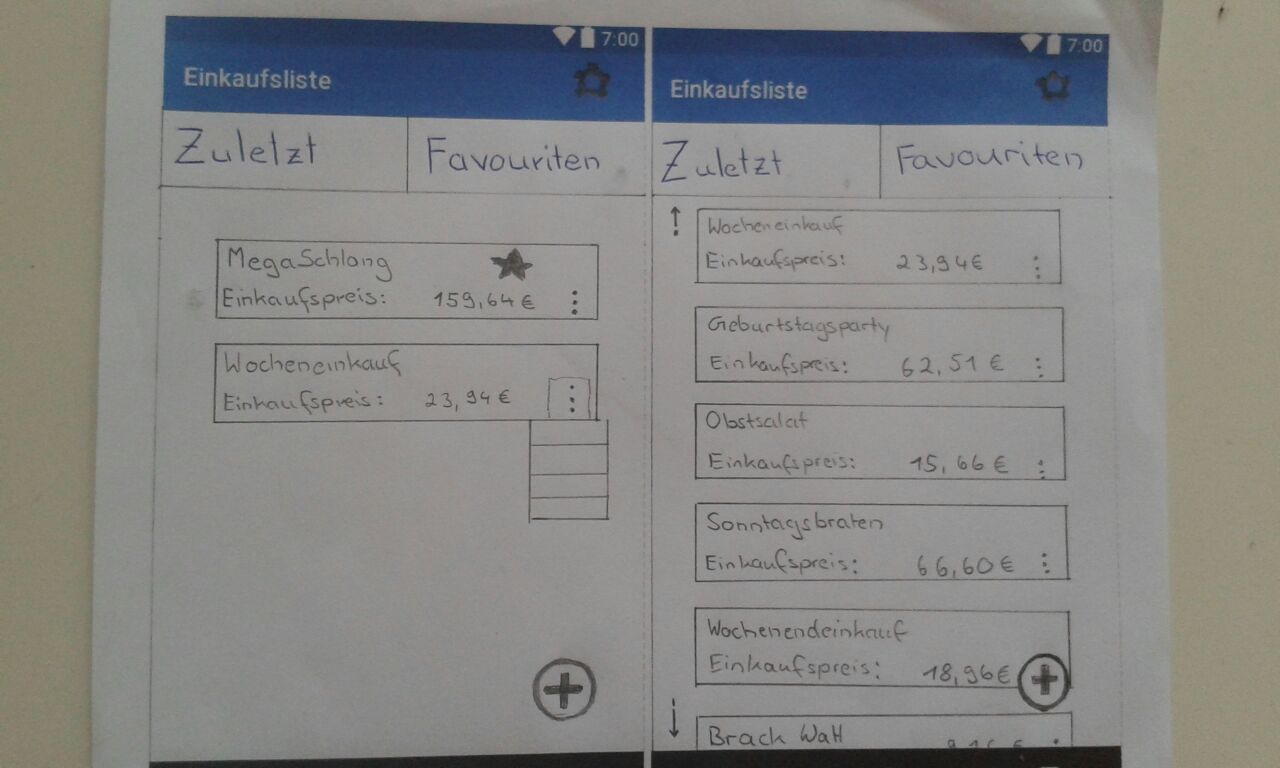 7:00
Einkaufsliste
Zuletzt
Favouriten
MegaSchlong
Einkaufspreis: 159,64€
Wocheneinkauf
Einkaufspreis: 23,94€
7:00
Einkaufsliste
Zuletzt
Favouriten
Wocheneinkauf
Einkaufspreis: 23,94€
Geburtstagsparty
Einkaufspreis: 62,51 €
Obstsalat
Einkaufspreis: 15,66€
Sonntagsbraten
Einkaufspreis: 66,60€
Wochenendeinkauf
Einkaufspreis: 18,96€
Brack